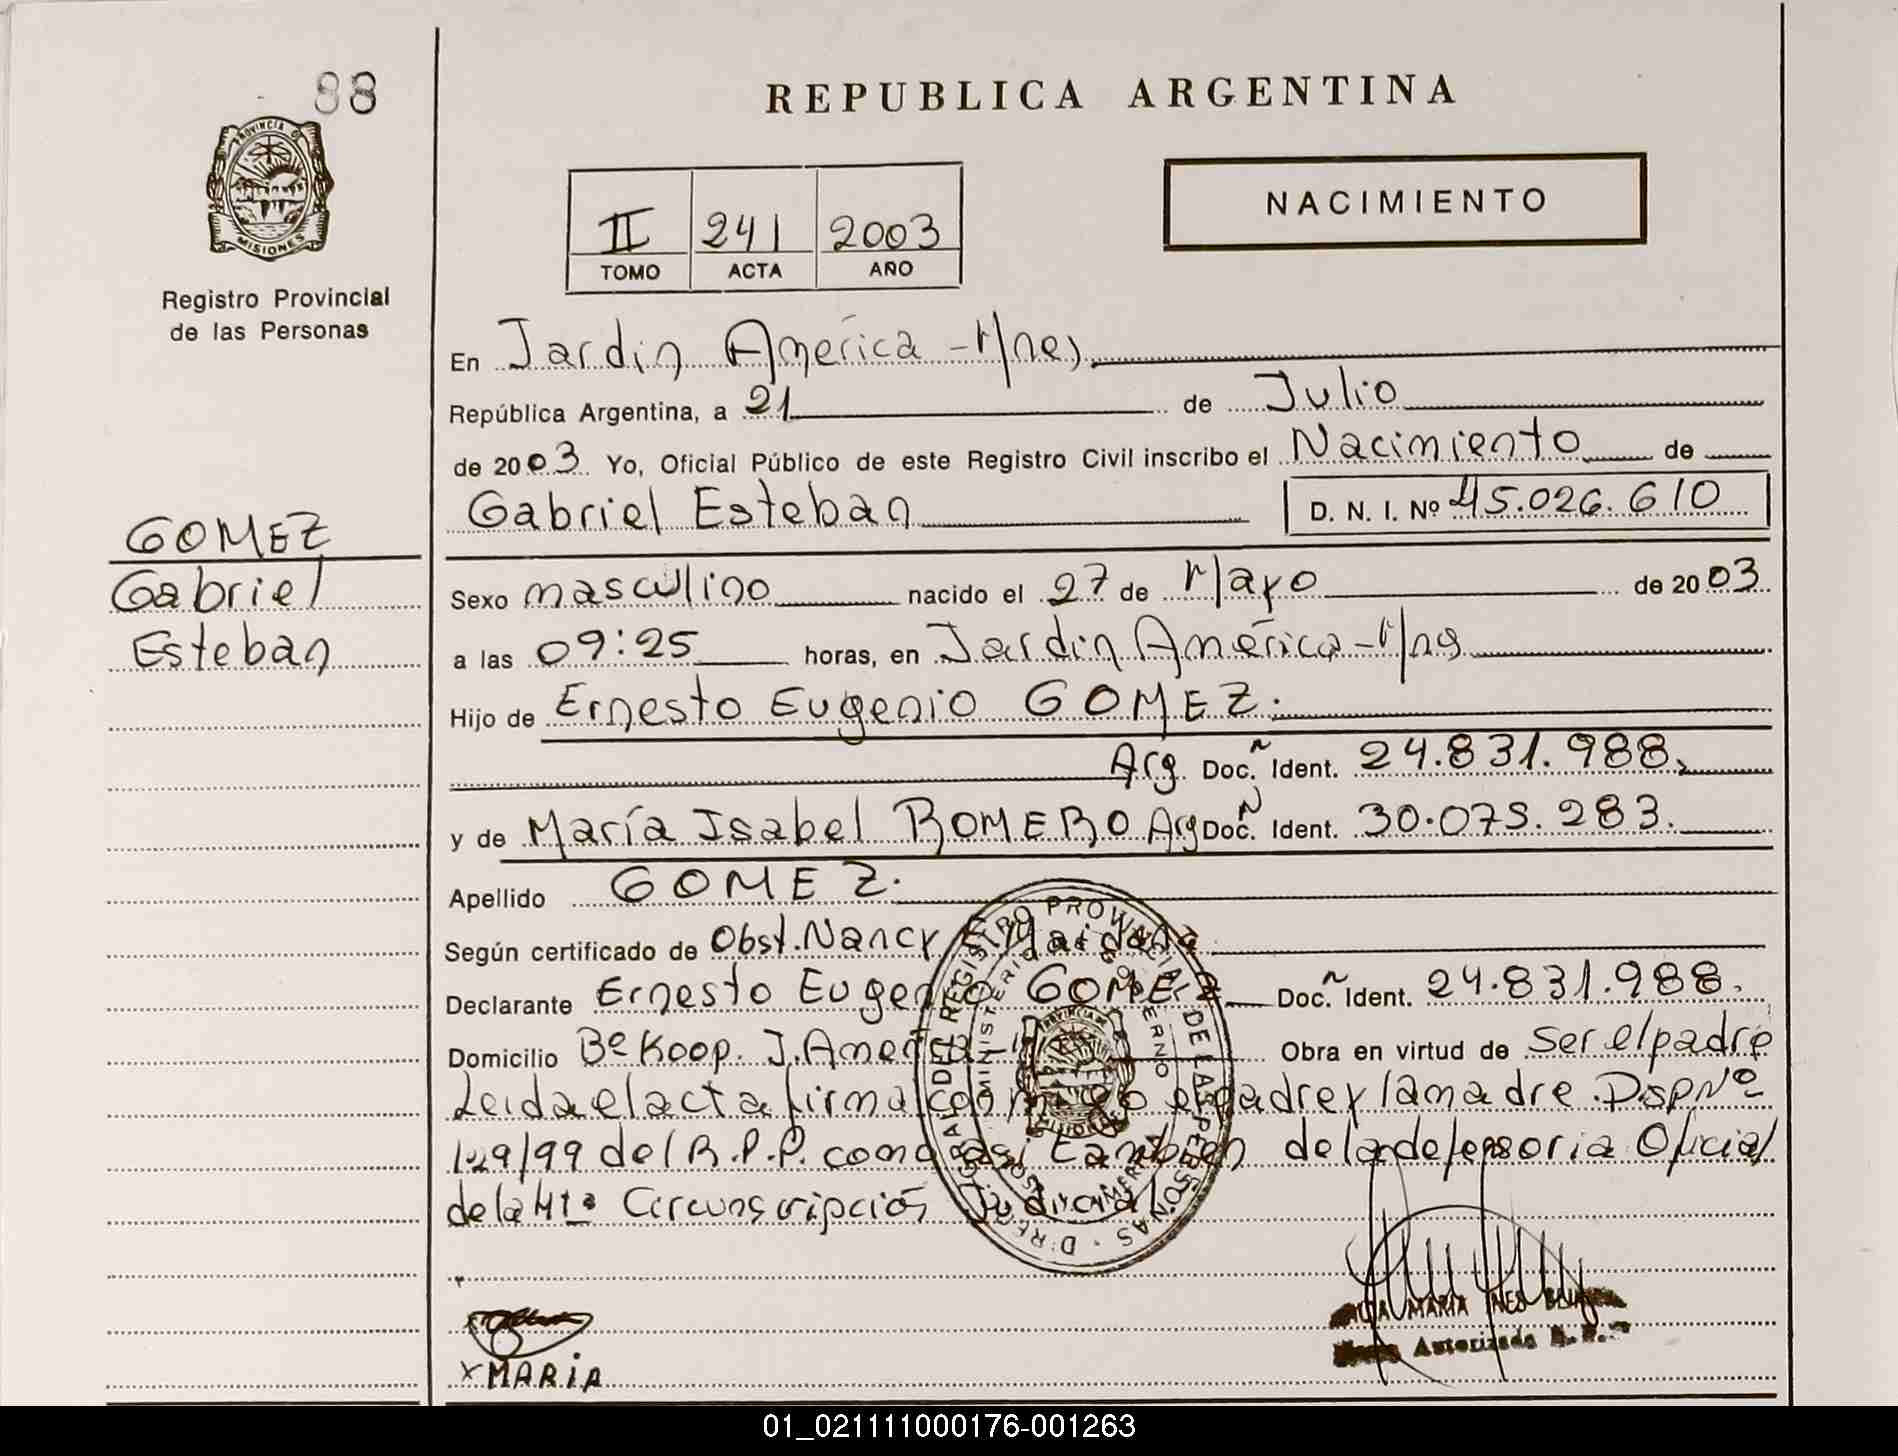 88
REPUBLICA ARGENTINA
PROVINCIA DE
MISIONES
Registro Provincial
de las Personas
II 241 2003
TOMO ACTA AÑO
NACIMIENTO
En Jardin América - Mnes,
República Argentina, a 21 de Julio
de 2003 Yo, Oficial Público de este Registro Civil inscribo el Nacimiento de
Gabriel Esteban D. N. I. Nº 45.026.610
GOMEZ
Gabriel
Esteban
Sexo masculino nacido el 27 de Mayo de 2003
a las 09:25 horas, en Jardin América - Mnes
Hijo de Ernesto Eugenio GOMEZ.
Arg. Doc. Ñ Ident. 24.831.988.
y de María Isabel ROMERO Arg Doc. Ñ Ident. 30.075.283.
Apellido GOMEZ.
Según certificado de Obst. Nancy E. Maidana
Declarante Ernesto Eugenio GOMEZ Doc. Ñ Ident. 24.831.988.
Domicilio Bº Koop. J. América Obra en virtud de Ser el padre
Leida el acta firma conmigo el padre y la madre. Disp Nº
129/99 del R.P.P. como asi tambien de la defensoria Oficial
de la 4ta Circunscripción Judicial.
DIRECC. GRAL. DEL REGISTRO PROVINCIAL DE LAS PERSONAS
MINISTERIO DE GOBIERNO
MARIA INES
Autorizada
x MARIA
01_021111000176-001263